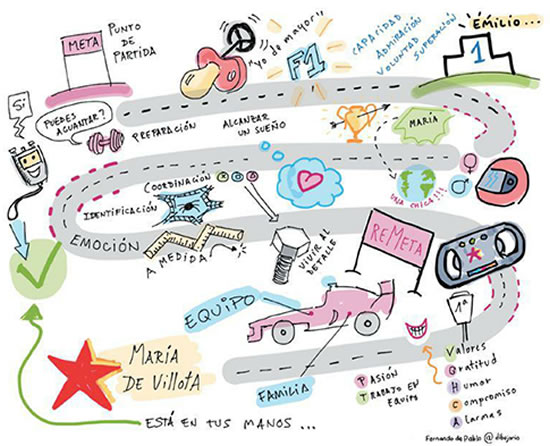 META
PUNTO
DE
PARTIDA
"yo de mayor"
F1
CAPACIDAD
ADMIRACIÓN
VOLUNTAD
SUPERACIÓN
EMILIO...
1
Si
PUEDES
AGUANTAR?
PREPARACIÓN
ALCANZAR
UN SUEÑO
MARÍA
UNA CHICA!!!
COORDINACIÓN
IDENTIFICACIÓN
EMOCIÓN
A MEDIDA
VIVIR AL
DETALLE
REMETA
EQUIPO
1ª
MARÍA
DE VILLOTA
FAMILIA
PASIÓN
TRABAJO EN
EQUIPO
VALORES
GRATITUD
HUMOR
COMPROMISO
ALARMAS
ESTÁ EN TUS MANOS...
Fernando de Pablo @dibujario